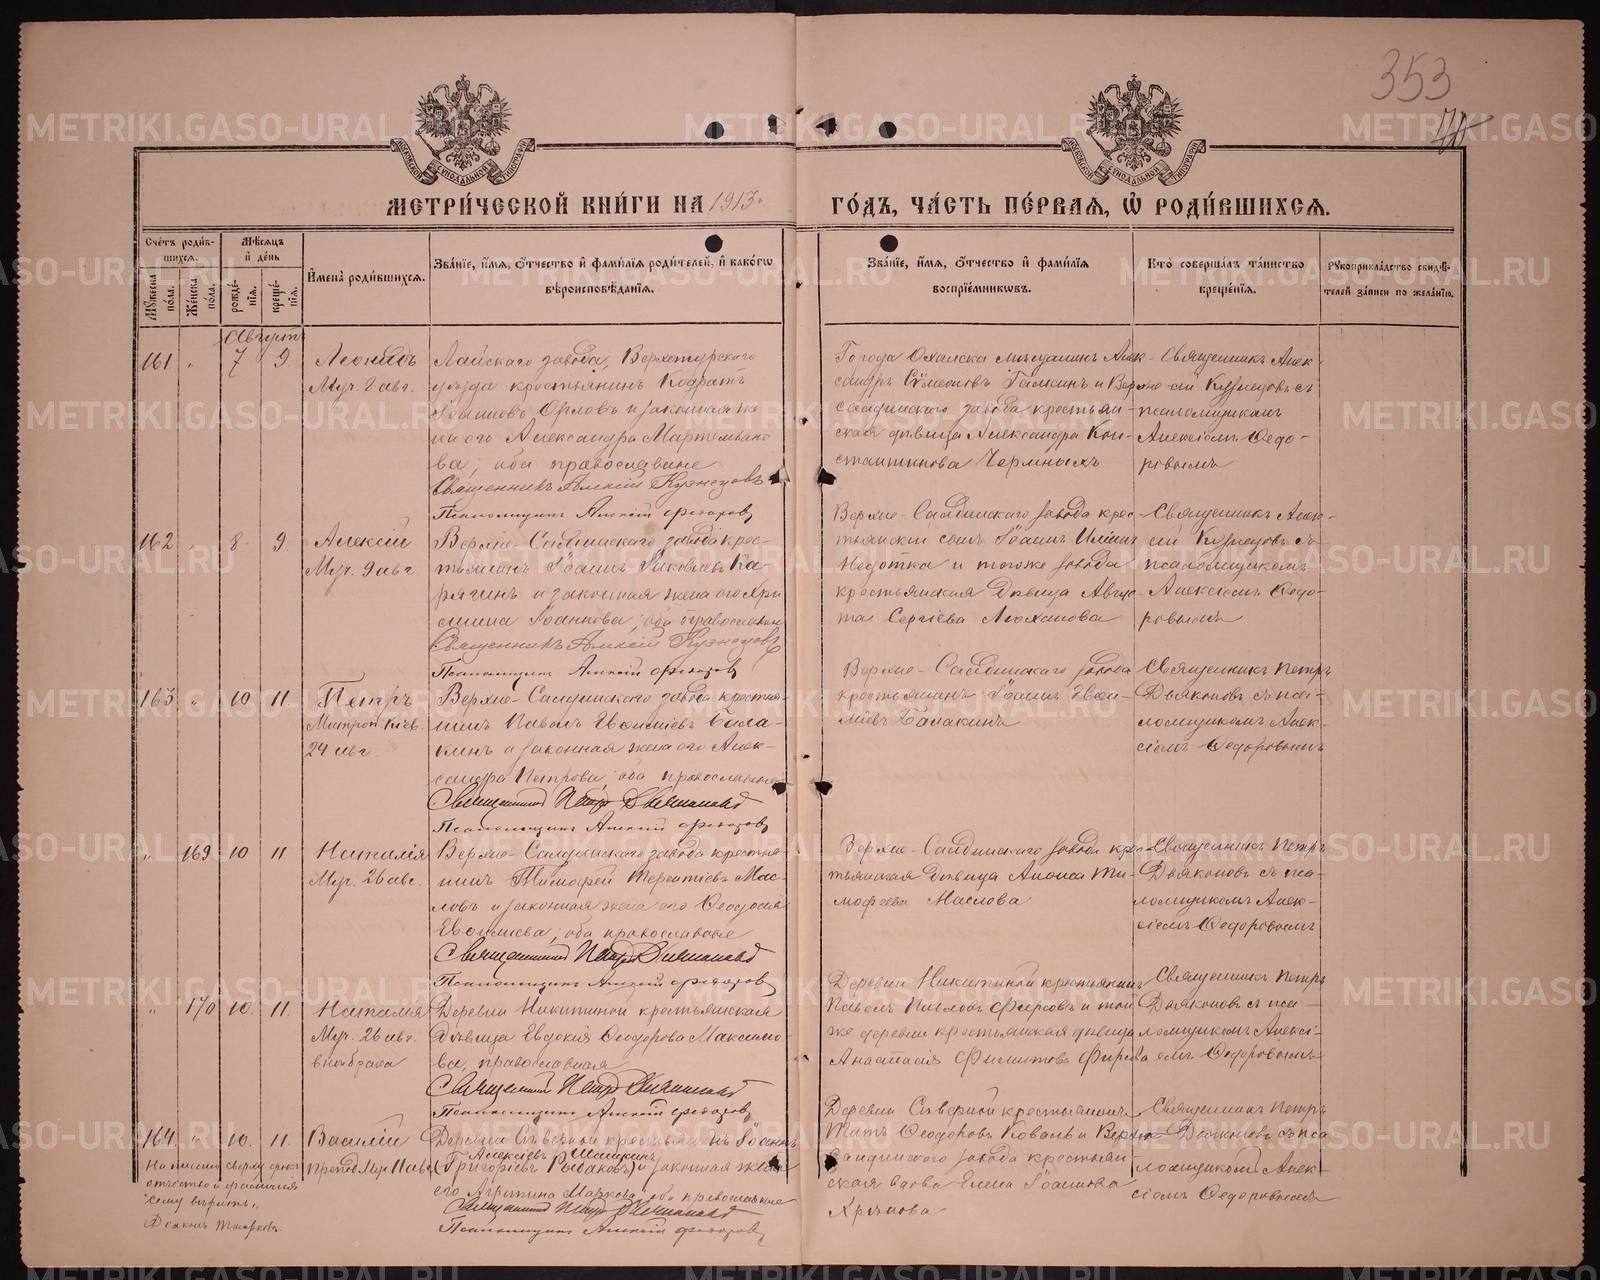 353
МЕТРИ́ЧЕСКОЙ КНИ́ГИ НА 1913 ГО́ДЪ, ЧА́СТЬ ПЕ́РВАЯ, Ѡ РОДИ́ВШИХСЯ.
Счетъ родившихся.
Мужеска пола.
Женска пола.
Мѣсяцъ и день
рожденія.
крещенія.
Имена родившихся.
Званіе, имя, отчество и фамилія родителей, и какогѡ вѣроисповѣданія.
Званіе, имя, отчество и фамилія воспріемниковъ.
Кто совершалъ таинство крещенія.
Рукоприкладство свидѣтелей записи по желанію.
Августъ
161 " 7 9.
Леонидъ
Муч. 8 авг.
Лайскаго завода, Верхотурскаго
уѣзда крестьянинъ Кодратъ
Іоанновъ Орловъ и законная же
на его Александра Мартемьяно
ва, оба православные
Священникъ Алексій Кузнецовъ
Псаломщикъ Алексій Федоровъ
Города Оханска мѣщанинъ Алек-
сандръ Сѵмеоновъ Галкинъ и Верхне-
салдинскаго завода крестьян-
ская дѣвица Александра Кон-
стантинова Чермныхъ
Священникъ Алек-
сій Кузнецовъ съ
псаломщикомъ
Алексіемъ Ѳедо-
ровымъ
162 8 9.
Алексій
Муч. 9 авг
Верхне-Салдинскаго завода крес-
тьянинъ Іоаннъ Іаковлевъ Ка-
рягинъ и законная жена его Хри
стина Іоаннова, оба православн
Священникъ Алексій Кузнецовъ
Псаломщикъ Алексій Федоровъ
Верхне-Салдинскаго завода крес-
тьянскій сынъ Іоаннъ Илiинъ
и тогоже завода
крестьянская дѣвица Авгус-
та Сергіева
Священникъ Алек-
сій Кузнецовъ съ
псаломщикомъ
Алексіемъ Ѳедо-
ровымъ
163 " 10 11.
Петръ
Митроп. Кіев.
24 авг.
Верхне-Салдинскаго завода крестья-
нинъ Павелъ Евѳиміевъ Бала-
кинъ и законная жена его Алек-
сандра Петрова, оба православные
Священникъ Петръ Дьяконовъ
Псаломщикъ Алексій Федоровъ
Верхне-Салдинскаго завода
крестьянинъ Іоаннъ Евѳи-
міевъ Балакинъ
Священникъ Петръ
Дьяконовъ съ пса-
ломщикомъ Алек-
сіемъ Ѳедоровымъ
" 169 10 11
Наталія
Муч. 26 авг.
Верхне-Салдинскаго завода крестья-
нинъ Тимоѳей Терентіевъ Мас-
ловъ и законная жена его Ѳеодосія
Евѳиміева, оба православные
Священникъ Петръ Дьяконовъ
Псаломщикъ Алексій Федоровъ
Верхне-Салдинскаго завода крес-
тьянская дѣвица Анѳиса Ти-
моѳеева Маслова
Священникъ Петръ
Дьяконовъ съ пса-
ломщикомъ Алек-
сіемъ Ѳедоровымъ
" 170 10. 11.
Наталія
Муч. 26 авг.
внѣбрачн
Деревни Никитиной крестьянская
дѣвица Евдокія Ѳеодорова Максимо-
ва, православная
Священникъ Петръ Дьяконовъ
Псаломщикъ Алексій Федоровъ
Деревни Никитиной крестьянинъ
Павелъ Павловъ Фирсовъ и той
же деревни крестьянская дѣвица
Анастасія Филиппова Фирсова
Священникъ Петръ
Дьяконовъ съ пса-
ломщикомъ Алексі-
емъ Ѳедоровымъ
164 " 10. 11.
Василій
Препод. Муч. Пав
Деревни Сѣверной крестьянинъ Іоаннъ
Алексѣевъ Шашкинъ
(Григоріевъ Рыбаковъ) и законная жена
его Агрипина Маркова, оба православные
Священникъ Петръ Дьяконовъ
Псаломщикъ Алексій Федоровъ
Деревни Сѣверной крестьянинъ
Ѳеодоровъ Коваль и Верхне-
салдинскаго завода крестьян-
ская вдова Елена Іоаннова
Священникъ Петръ
Дьяконовъ съ пса
ломщикомъ Алек-
сіемъ Ѳедоровымъ
На писан сверху строк
отчество и фамилія
сему вѣрить.